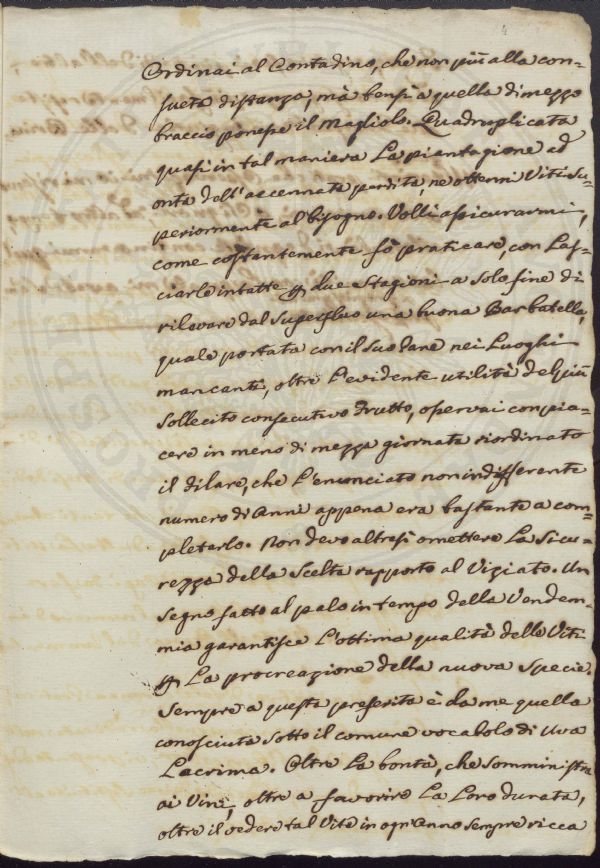 Ordinai al Contadino, che non più alla con=
sueta distanza, mà bensì a quella di mezzo
braccio ponesse il Magliolo. Quadruplicata
quasi in tal maniera La piantagione ad
onta dell'accennata perdita, ne ottenni Viti su=
periormente al bisogno. Volli assicurarmi,
come costantemente fò praticare, con Las=
ciarle intatte p due Stagioni a solo fine di
rilevare dal Superfluo una buona Barbatella,
quale portata con il suo Pane nei Luoghi
mancanti, oltre L'evidente utilità del più
Sollecito consecutivo Frutto, osservai con pia=
cere in meno di mezza giornata riordinato
il filare, che L'enunciato non indifferente
numero di Anni appena era bastante a com=
pletarlo. Non devo altresì omettere La Sicu=
rezza della Scelta rapporto al Viziato. Un
Segno fatto al palo in tempo della Vendem=
mia garantisce L'ottima qualità delle Viti
p La procreazione della nuova Specie.
Sempre a questa preferita è da me quella
conosciuta sotto il comune vocabolo di Uva
Lacrima. Oltre La bontà, che somministra
ai Vini, oltre a favorire La Loro durata,
oltre il vedere tal Vite in ogn'Anno sempre ricca